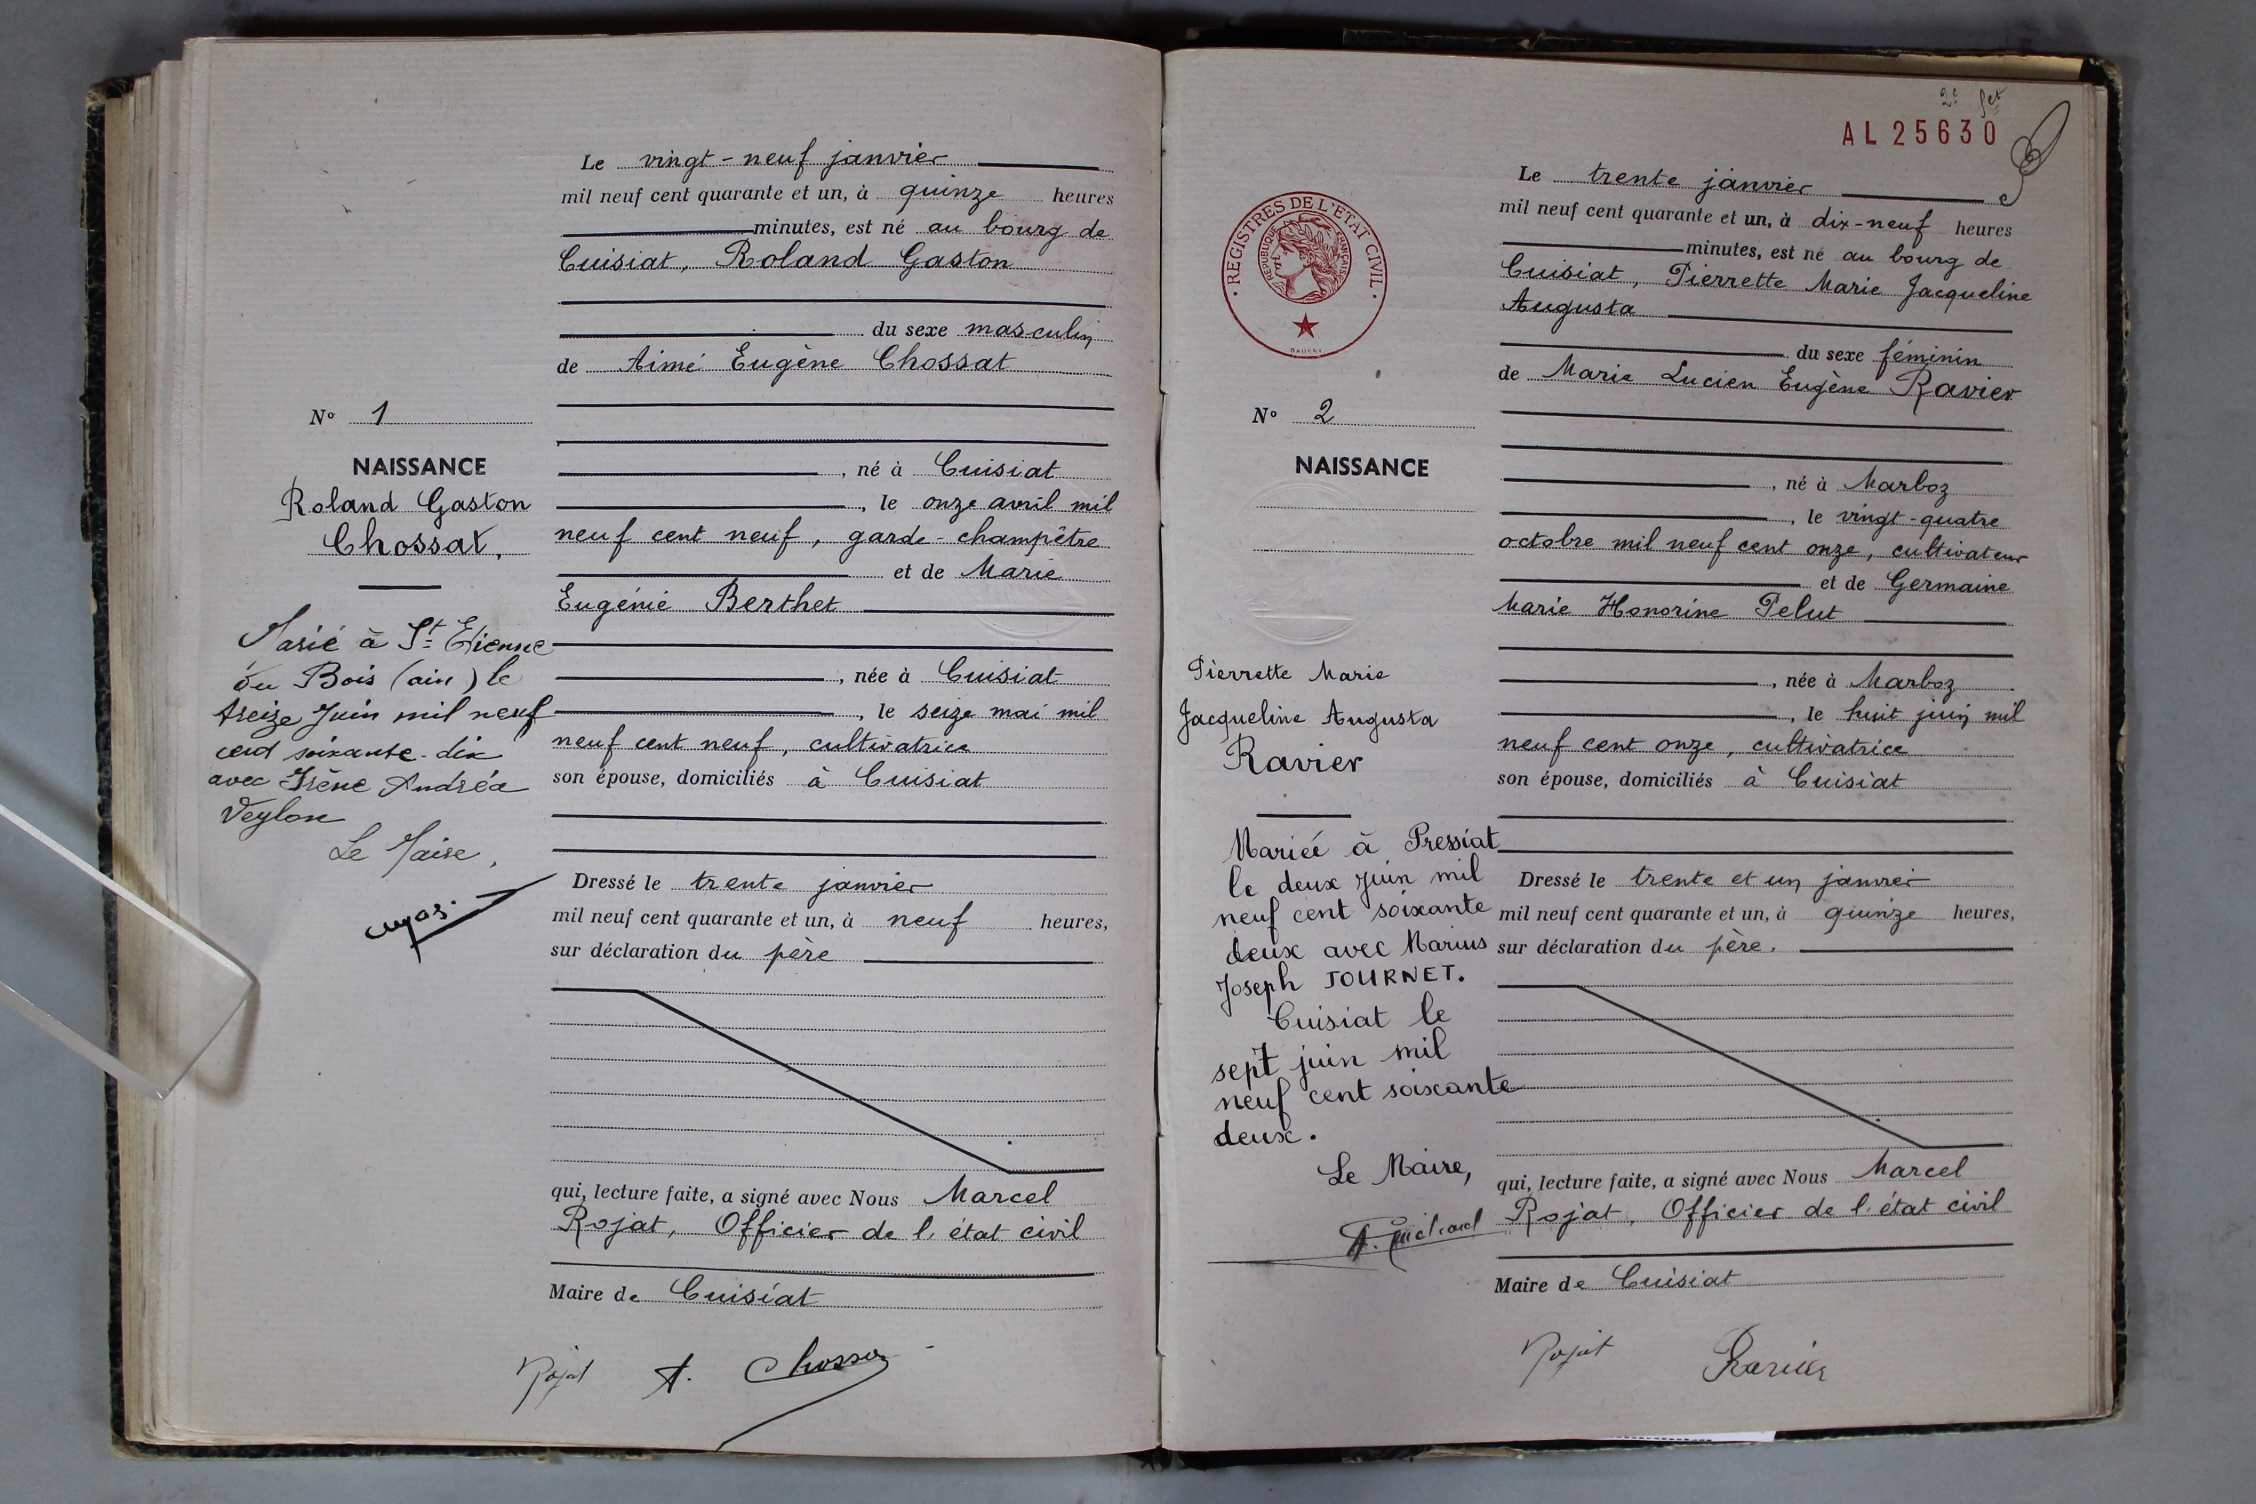 Le vingt-neuf janvier
mil neuf cent quarante et un, à quinze heures
minutes, est né au bourg de
Cuisiat, Roland Gaston
du sexe masculin
de Aimé Eugène Chossat
N° 1
NAISSANCE
Roland Gaston
Chossat,
, né à Cuisiat
, le onze avril mil
neuf cent neuf, garde-champêtre
et de Marie
Eugénie Berthet
, née à Cuisiat
, le seize mai mil
neuf cent neuf, cultivatrice
son épouse, domiciliés à Cuisiat
Marié à St Etienne
du Bois (ain) le
treize Juin mil neuf
cent soixante-dix
avec Irène Andréa
Veylon
Le Maire,
Dressé le trente janvier
mil neuf cent quarante et un, à neuf heures,
sur déclaration du père
qui, lecture faite, a signé avec Nous Marcel
Rojat, Officier de l'état civil
Maire de Cuisiat
Rojat A. Chossat
AL25630
REGISTRES DE L'ETAT CIVIL
REPUBLIQUE FRANÇAISE
Le trente janvier
mil neuf cent quarante et un, à dix-neuf heures
minutes, est né au bourg de
Cuisiat, Pierrette Marie Jacqueline
Augusta
du sexe féminin
de Marie Lucien Eugène Ravier
N° 2
NAISSANCE
Pierrette Marie
Jacqueline Augusta
Ravier
, né à Marboz
, le vingt-quatre
octobre mil neuf cent onze, cultivateur
et de Germaine
Marie Honorine Pelut
, née à Marboz
, le huit juin mil
neuf cent onze, cultivatrice
son épouse, domiciliés à Cuisiat
Mariée à Pressiat
le deux juin mil
neuf cent soixante
deux avec Marius
Joseph JOURNET.
Cuisiat le
sept juin mil
neuf cent soixante
deux.
Le Maire,
Dressé le trente et un janvier
mil neuf cent quarante et un, à quinze heures,
sur déclaration du père.
qui, lecture faite, a signé avec Nous Marcel
Rojat, Officier de l'état civil
Maire de Cuisiat
Rojat Ravier